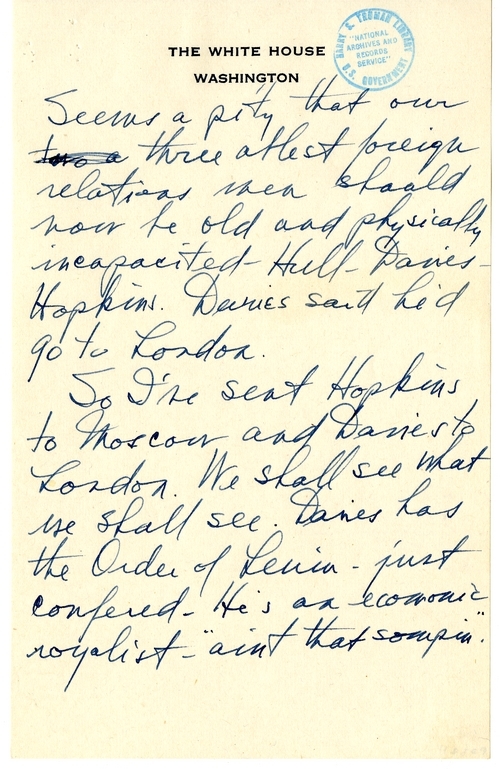 THE WHITE HOUSE
WASHINGTON
HARRY S. TRUMAN LIBRARY
"NATIONAL
ARCHIVES AND
RECORDS
SERVICE"
U.S. GOVERNMENT
Seems a pity that our
two a three ablest foreign
relations men should
now be old and physically
incapacited - Hull - Davies -
Hopkins. Davies said he'd
go to London.
So I've sent Hopkins
to Moscow and Davies to
London. We shall see what
we shall see. Davies has
the Order of Lenin - just
confered - He's an economic
royalist - "aint that sompin".